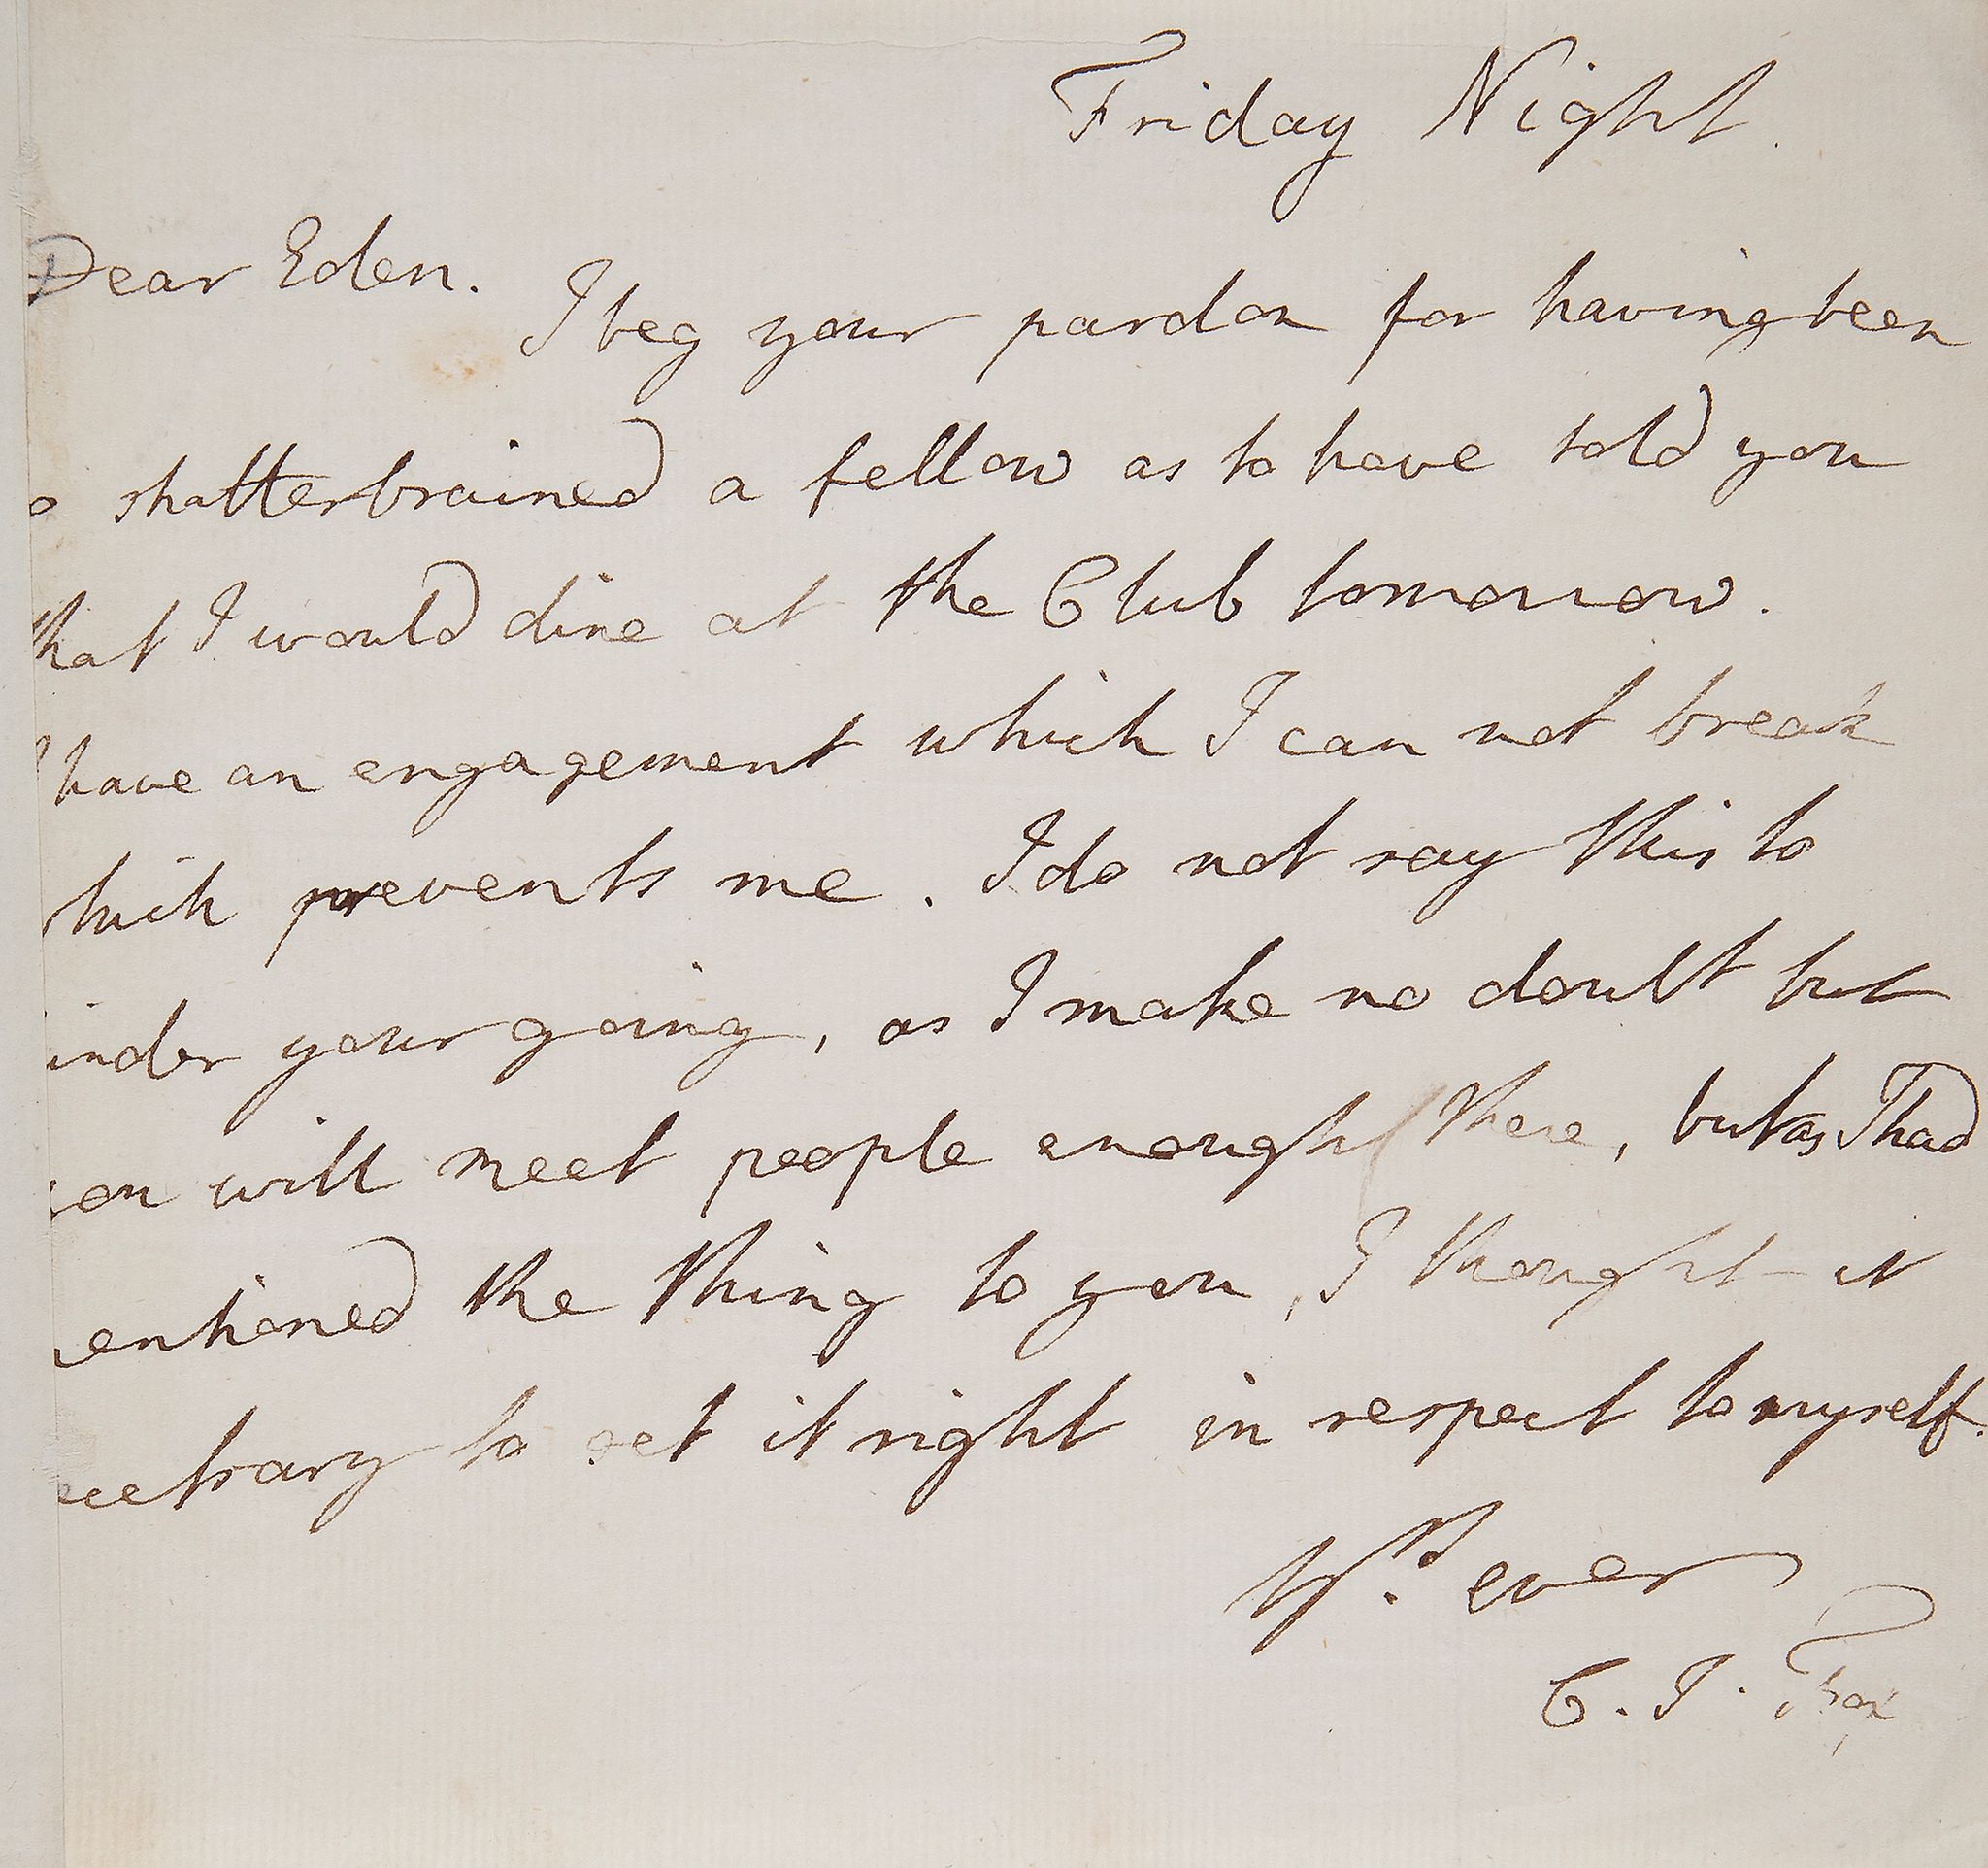 Friday Night.
Dear Eden.
I beg your pardon for having been
o shatterbrained a fellow as to have told you
that I would dine at the Club tomorrow.
I have an engagement which I can not break
hich prevents me. I do not say this to
inder your going, as I make no doubt but
you will meet people enough there, but as I had
entioned the thing to you, I thought it
ecessary to set it right in respect to myself.
Yrs. ever
C. J. Fox